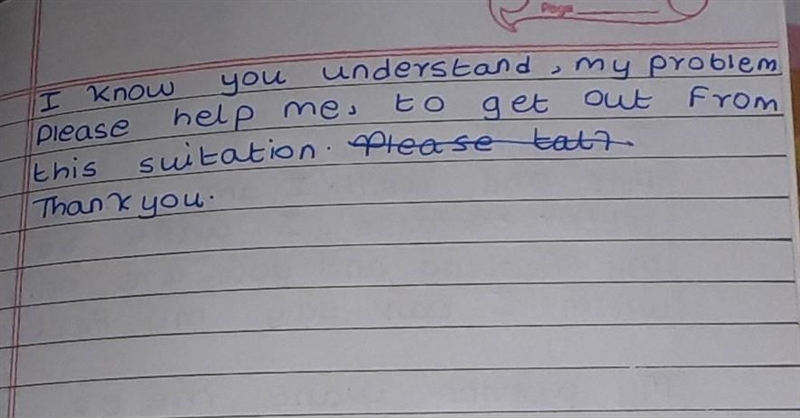 Page
I know you understand, my problem
Please help me, to get out From
this suitation. Please
Thank you.